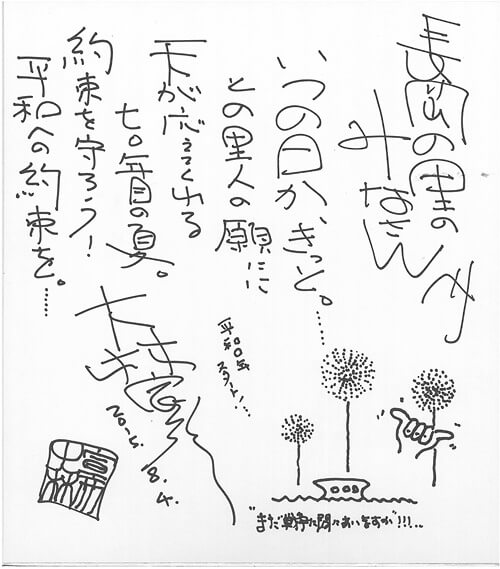 長岡の里の
みなさん
いつの日か、きっと。……
との里人の願いに
天が応えてくれる
七〇年目の夏。
約束を守ろう!
平和への約束を。……
平和〇年
スタート!…
2015.
8.
4.
"まだ戦争に間にあいますか"!!!…